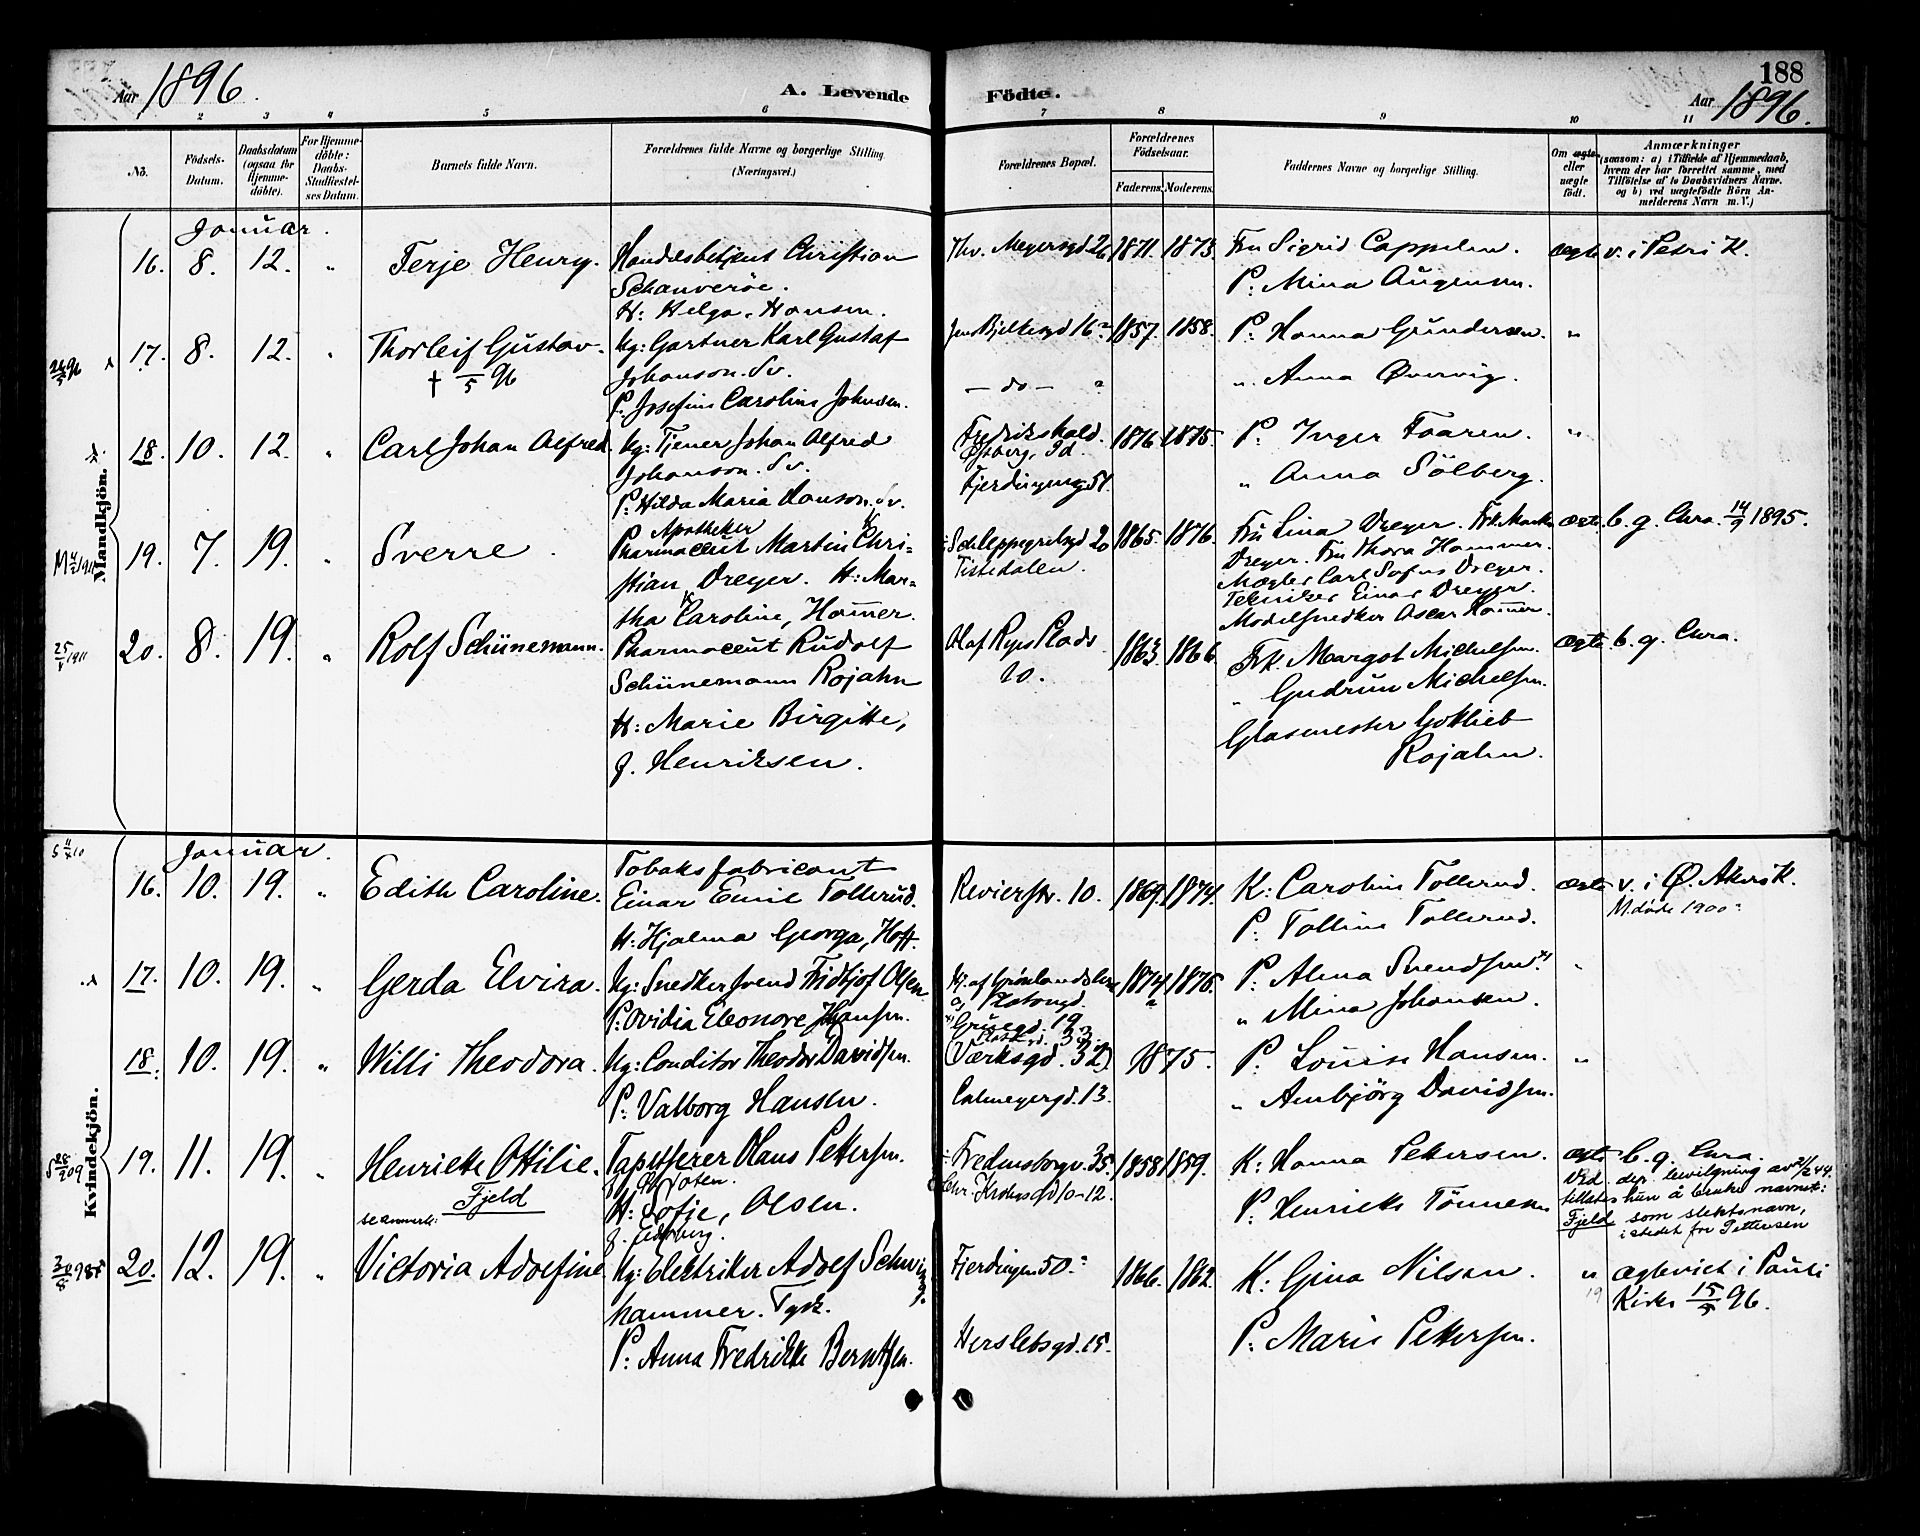 188
Aar 1896.
A. Levende Födte.
Aar 1896.
2 3 4 5 6 7 8 9 10 11
No.
Födsels-Datum.
Daabsdatum (ogsaa för Hjemme-döbte).
For Hjemme-döbte: Daabs-Stadfæstel-ses Datum.
Barnets fulde Navn.
Forældrenes fulde Navne og borgerlige Stilling (Næringsvei.)
Forældrenes Bopæl.
Forældrenes Födselsaar.
Faderens. Moderens.
Faddernes Navne og borgerlige Stilling.
Om ægte eller uægte födt.
Anmærkninger
(saasom: a) i Tilfælde af Hjemmedaab,
hvem der har forrettet samme, med
Tilföielse af to Daabsvidners Navne.
og b) ved uægtefödte Börn An-
melderens Navn m. V.)
Mandkjön.
Januar.
16. 8. 12. " Terje Henry. Handelsbetjent Christian Thv. Meyersgd 26 1871. 1873. Fru Sigrid Cappelen. ægte v. i Petri K.
Schanveröe. P. Mina
H: Helga, Hansen.
17. 8. 12. " Thorleif Gustav. Ug: Gartner Karl Gustaf Jens Bjelkesgd 16 1857. 1858. P. Hanna Gundersen. "
† /5 96 Johanson. Sv. — do — " " Anna Øvervig.
P. Josefine Caroline Johnsen.
18. 10. 12. " Carl Johan Alfred. Ug: Tjener Johan Alfred Fredrikshald. 1876. 1875. P. Inger Faaren. "
Johanson. Sv. Id. " Anna Sölberg.
P. Hilda Maria Hanson. Sv. Fjerdingen 51.
19. 7. 19. " Sverre. Apotheker
Pharmaceut Martin Chri= Schleppegrelsgd 20 1865. 1876. Fru Lina Dreyer. Frk. ægte b. g. Chra. 14/9 1895.
stian Dreyer. H: Mar= Tistedalen. Dreyer. Fru Thora Hammer.
tha Caroline, Hamer. Mægler Carl Sofus Dreyer.
Tekniker Einar Dreyer.
Modelsnedker Oscar Hamer.
25/ 1911 20. 8. 19. " Rolf Schünemann. Pharmaceut Rudolf Olaf Ryes Plads 1863. 1866. Frk Margot Michelsen. ægte b. g. Chra.
Schünemann Rojahn 20. " Gudrun Michelsen.
H: Marie Birgitte, Glasmester Gottlieb
f. Henriksen. Rojahn.
Kvindekjön.
Januar.
16. 10. 19. " Edith Caroline. Tobaksfabricant
Einar Emil Tollerud. Revierstr. 10. 1869. 1874. K: Caroline Tollerud. ægte v. i Ø. Akers K.
H: Hjalma Georga, Hoff. P: Tolline Tollerud. M. døde 1900
17. 10. 19. " Gerda Elvira. Ug: Snedker Svend Fridtjof Olsen 1874 1876. P: Alma Svendsen. "
P: Ovidia Eleonore Hansen. Grüsegd. 19 " Mina Johansen.
18. 10. 19. " Willi Theodora. Ug: Conditor Theodor Davidsen. Værksgd. 32 1875. P: Louise Hansen. "
P: Valborg Hansen. Calmeyergd. 13. " Ambjörg Davidsen.
19. 11. 19. " Henriette Ottilie. Tapetserer Olaus Pettersen. Fredensborgv. 35. 1858 1859. K: Hanna Pettersen. ægte b. g. Chra.
Fjeld H: Sofie, Olsen. Chr. Krohgsgd 10-12. P: Henriette Tönnesen
se anmerk: Ved dep. bevilgning av 21/2 44
tillates hun å bruke navnet:
Fjeld som slektsnavn,
istedet for Pettersen
20. 12. 19. " Victoria Adolfine Ug: Elektriker Adolf Schwing- Fjerdingen 50. 1866. 1862. K: Gina Nilsen. " ægteviet i Pauli
hammer. Tysk. Kirke 15/5 96.
P: Anna Fredrikke Berntsen. Herslebsgd. 15. P. Marie Pettersen.